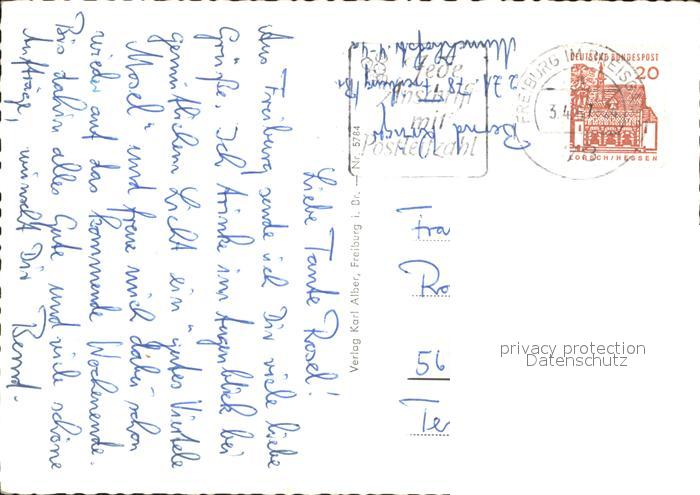 Liebe Tante Rosel!
Aus Freiburg sende ich Dir viele liebe
Grüße. Ich trinke im Augenblick bei
gemütlichem Licht ein "gutes Viertele
Mosel" und freue mich dabei schon
wieder auf das kommende Wochenende.
Bis dahin alles Gute und viele schöne
Aufträge, wünscht Dir Bernd.
Verlag Karl Alber, Freiburg i. Br. — Nr. 5784
Bernd
78 Freiburg i. Br.
Jede
Anschrift
mit
Postleitzahl
FREIBURG IM BREISG
DEUTSCHE BUNDESPOST
20
LORSCH/HESSEN
Fra
Ro
56
Te
privacy protection
Datenschutz